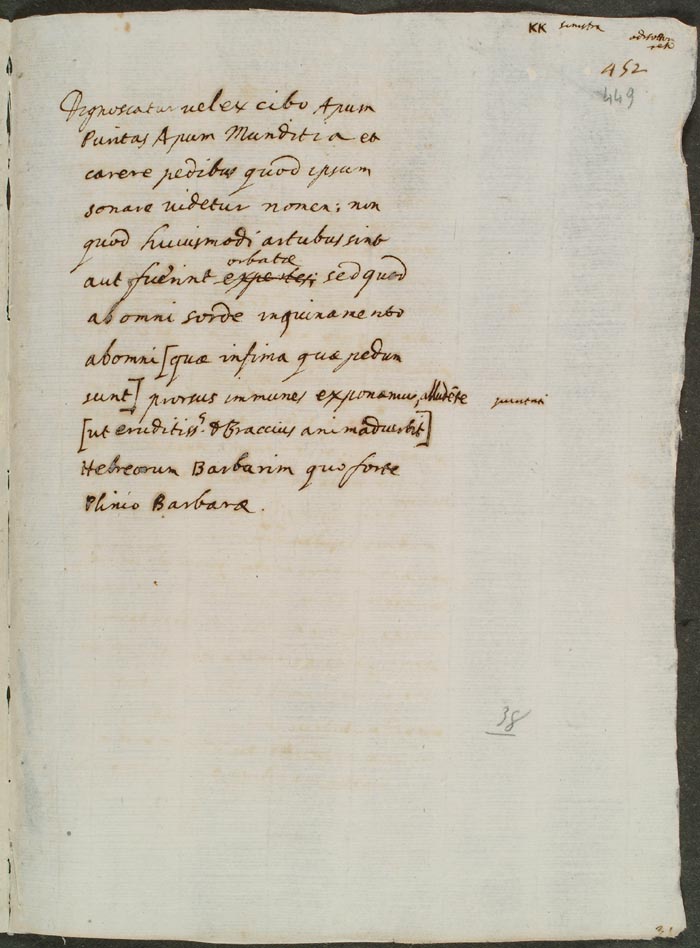 KK sinistra
452
449
Dignoscatur vel ex cibo Apum
Puritas Apum Munditia et
carere pedibus quod ipsum
sonare videtur nomen; non
quod huiusmodi artubus sint
orbatæ
aut fuerint expertes; sed quod
ab omni sorde inquinamento
ab omni [quæ infima quæ pedum
sunt] prorsus immunes exponamus, alludēte
[ut eruditiss.s Braccius animadvertit]
Hebreorum Barbarim quo forte
Plinio Barbaræ.
38